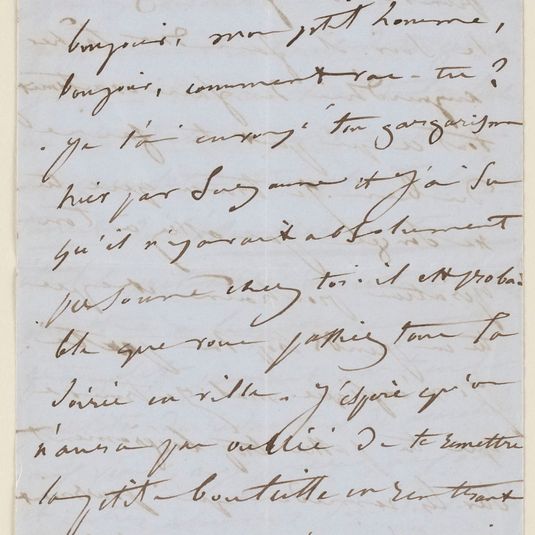 bonjour, mon ptit homme,
bonjour, comment vas-tu?
Je t'ai envoyé ton gargarisme
hier par Suzanne et j'ai su
qu'il n'y avait absolument
personne chez toi. il est proba
ble que vous passiez toute la
soirée en ville. J'espère qu'on
n'aura pas oublié de te remettre
la petite bouteille en rentrant